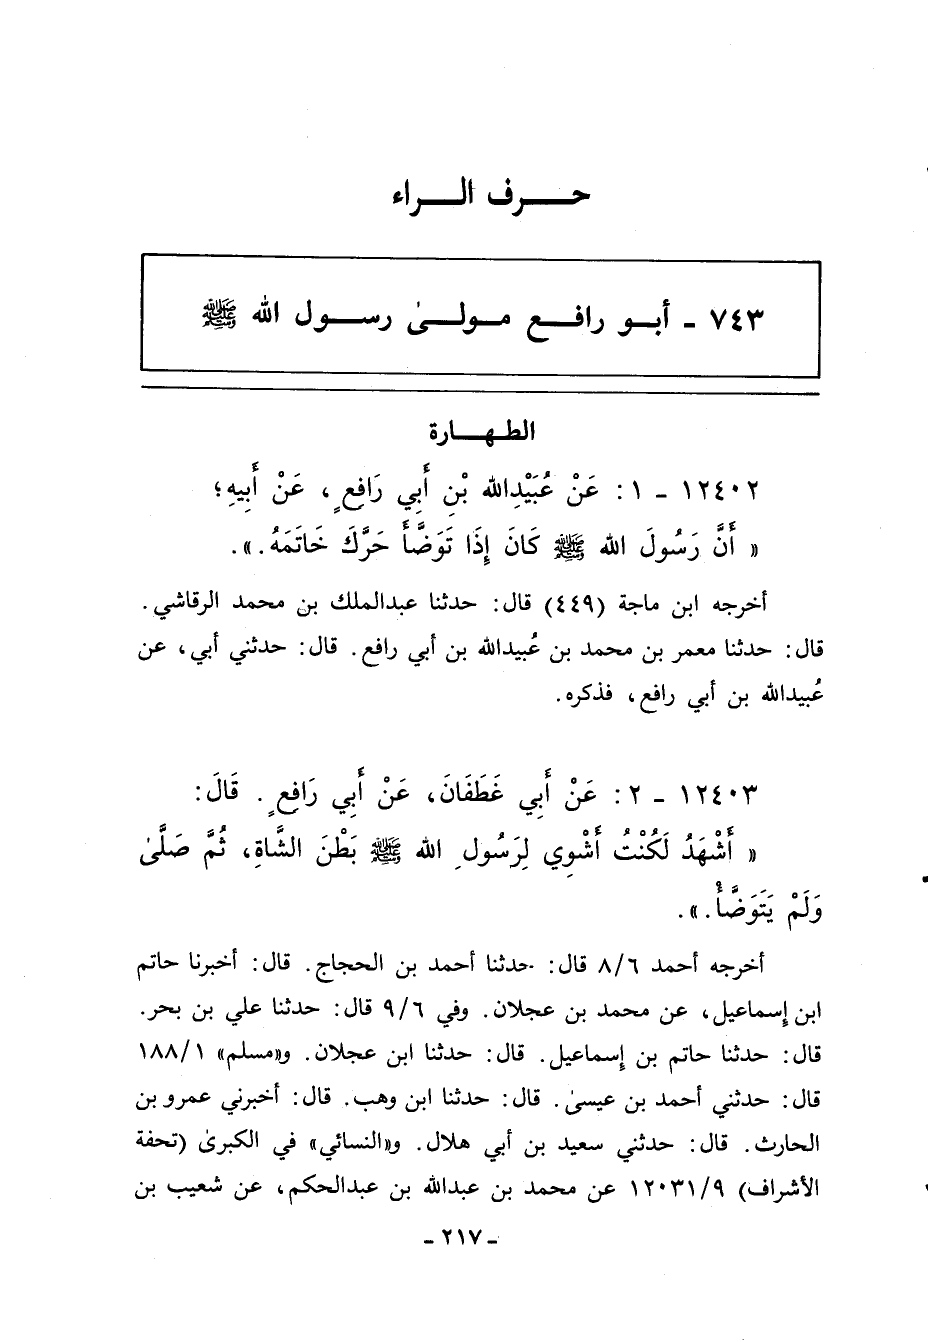 حـــرف الـــراء
٧٤٣ - أبـو رافـع مـولـىٰ رسـول الله ﷺ
الطـهـارة
١٢٤٠٢ - ١: عَنْ عُبَيْدِالله بْنِ أَبِي رَافِعٍ، عَنْ أَبِيهِ؛
« أَنَّ رَسُولَ الله ﷺ كَانَ إِذَا تَوَضَّأَ حَرَّكَ خَاتَمَهُ.».
أخرجه ابن ماجة (٤٤٩) قال: حدثنا عبدالملك بن محمد الرقاشي.
قال: حدثنا معمر بن محمد بن عُبيدالله بن أبي رافع. قال: حدثني أبي، عن
عُبيدالله بن أبي رافع، فذكره.
١٢٤٠٣ - ٢: عَنْ أَبِي غَطَفَانَ، عَنْ أَبِي رَافِعٍ. قَالَ:
« أَشْهَدُ لَكُنْتُ أَشْوِي لِرَسُولِ الله ﷺ بَطْنَ الشَّاةِ، ثُمَّ صَلَّىٰ
وَلَمْ يَتَوَضَّأْ.».
أخرجه أحمد ٨/٦ قال: حدثنا أحمد بن الحجاج. قال: أخبرنا حاتم
ابن إِسماعيل، عن محمد بن عجلان. وفي ٩/٦ قال: حدثنا علي بن بحر.
قال: حدثنا حاتم بن إِسماعيل. قال: حدثنا ابن عجلان. و«مسلم» ١٨٨/١
قال: حدثني أحمد بن عيسىٰ. قال: حدثنا ابن وهب. قال: أخبرني عمرو بن
الحارث. قال: حدثني سعيد بن أبي هلال. و«النسائي» في الكبرىٰ (تحفة
الأشراف) ١٢٠٣١/٩ عن محمد بن عبدالله بن عبدالحكم، عن شعيب بن
- ٢١٧ -